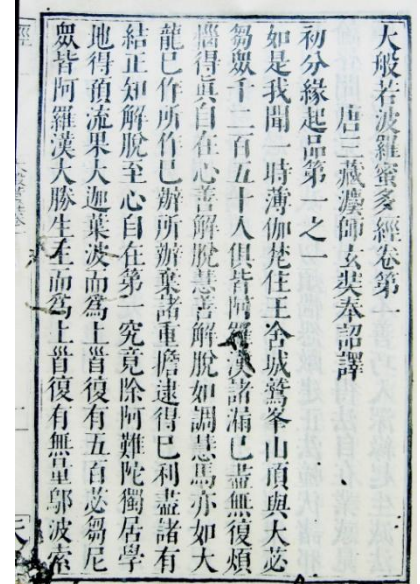 大般若波羅蜜多經卷第一
唐三藏灋師玄奘奉詔譯
初分緣起品第一之一
如是我聞一時薄伽梵住王舍城鷲峯山頂與大苾
芻眾千二百五十人俱皆阿羅漢諸漏已盡無復煩
惱得眞自在心善解脫慧善解脫如調慧馬亦如大
龍已作所作已辦所辦棄諸重擔逮得己利盡諸有
結正知解脫至心自在第一究竟除阿難陀獨居學
地得預流果大迦葉波而爲上首復有五百苾芻尼
眾皆阿羅漢大勝生主而爲上首復有無量鄔波索
經
一
天